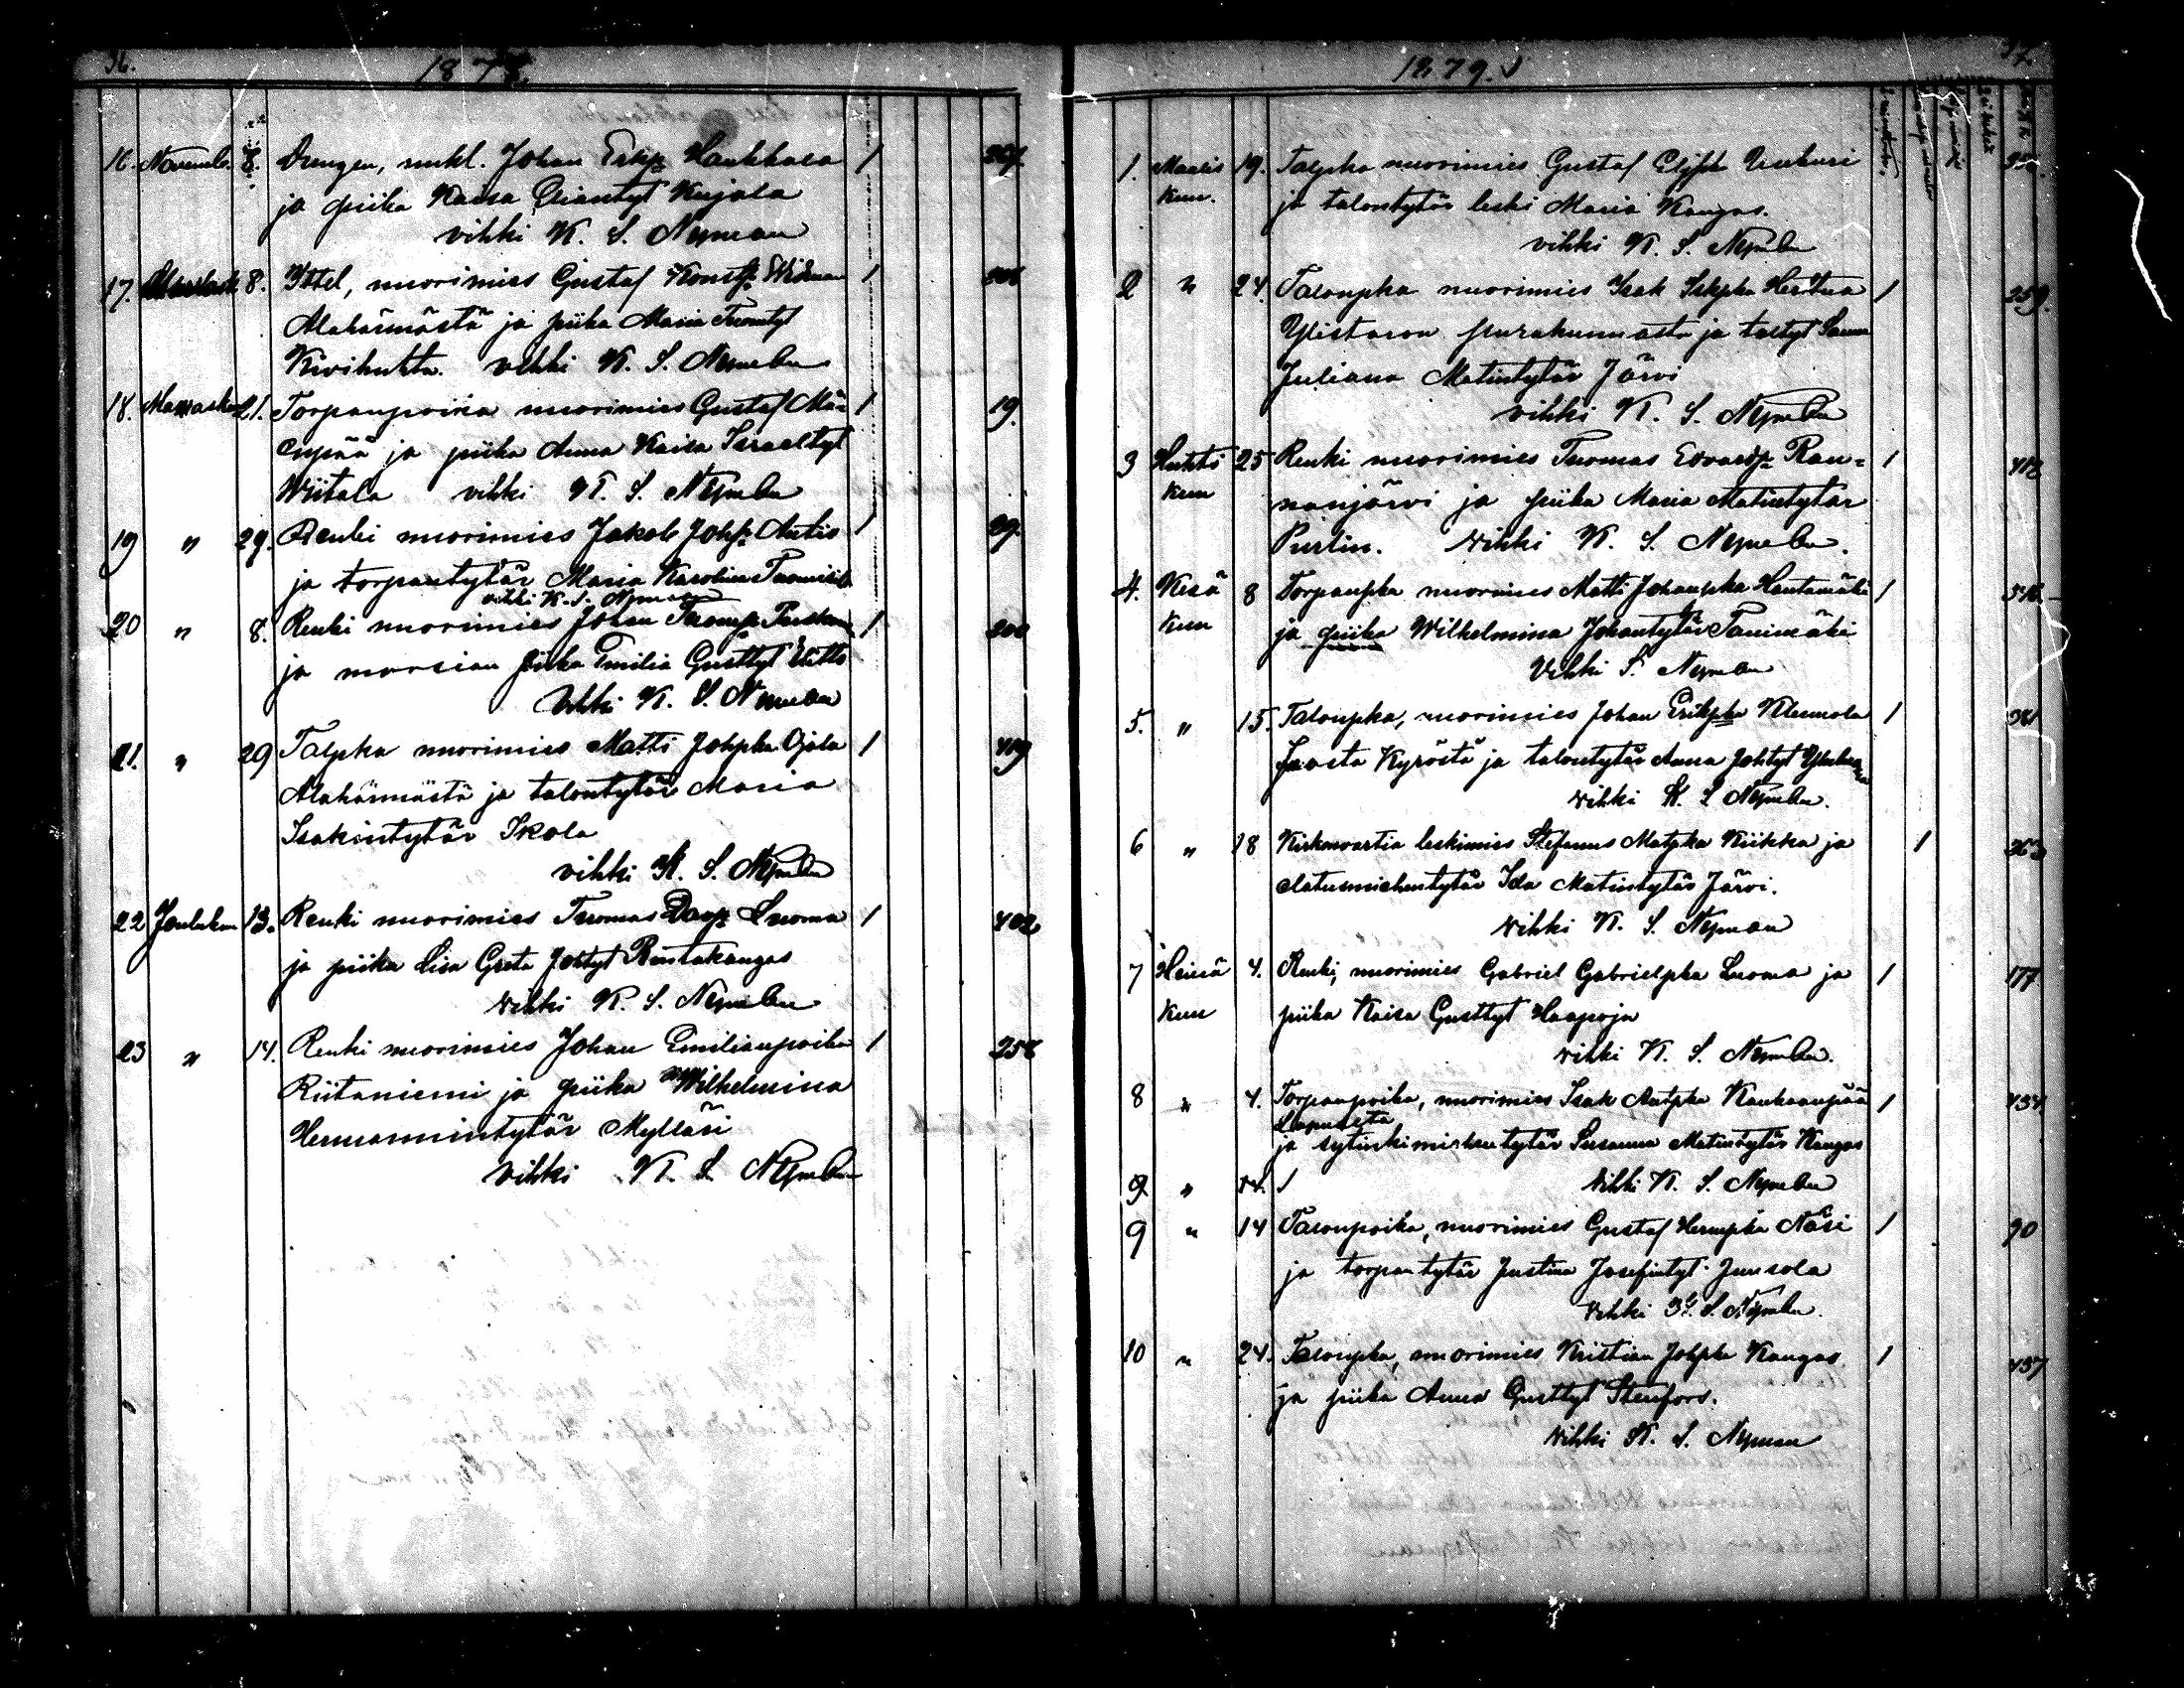 36.
1878.
16. Novemb. 8. Drengen, unkl. Johan Erkp. Haukkala 1 267.
ja piika Kaisa Eliantyt Kujala
vihki K. S. Nyman
17. 8. Itsel, nuorimies Gustaf Konstp. Widman 1 208
Alahärmästä ja piika Maria Tuomtyt
Kivihuhta. vihki K. S. Nyman
18. Marrask. 21. Torpanpoika nuorimies Gustaf Mä- 1 19.
enpää ja piika Anna Kaisa Israeltyt
Wiitala vihki K. S. Nyman
19 " 29. Renki nuorimies Jakob Johp. Antis 1 29.
ja torpantytär Maria Karolina
vihki K. S. Nyman
20 " 8. Renki nuorimies Johan Tuomp. 1 200
ja morsian piika Emilia Gusttyt
Vihki K. S. Nyman
21. " 29 Talpka nuorimies Matti Johpka Ojala 1 419
Alahärmästä ja talontytär Maria
Isakintytär Ikola
vihki K. S. Nyman
22 Joulukuu 13. Renki nuorimies Tuomas Davp. Luoma 1 402
ja piika Lisa Greta Johtyt Rintakangas
vihki K. S. Nyman
23 " 14. Renki nuorimies Johan Emilianpoika 1 258
Riitaniemi ja piika Wilhelmina
Hermannintytär Mylläri
vihki K. S. Nyman
37.
1879.
1. Maalis 19. Talpka nuorimies Gustaf
kuu. ja talontytär leski Maria Kangas.
vihki K. S. Nyman
2 " 24. Talonpka nuorimies Isak Iskpka Herttua 1 259.
Ylistaron seurakunnasta ja taltyt Sanna
Juliana Matintytär Järvi
vihki K. S. Nyman
3 Huhti 25 Renki nuorimies Tuomas Edvardp. Ran- 1 418
kuu nanjärvi ja piika Maria Matintytär
Purtin. vihki K. S. Nyman.
4. Kesä 8 Torpanpka nuorimies Matti Johanpka Hautamäki 1
kuu ja piika Wilhelmina Johantytär Tanimäki
Vihki S. Nyman
5. " 15. Talonpka, nuorimies Johan Erikpka Klemola 1 381
Isosta Kyröstä ja talontytär Anna Johtyt
vihki K. S. Nyman.
6 " 18 Kirkonvartia leskimies Stefanus Matpka Kiikka ja 1
elatusmiehentytär Ida Matintytär Järvi.
vihki K. S. Nyman
7 Heinä 4. Renki, nuorimies Gabriel Gabrielpka Luoma ja 1 177
kuu piika Kaisa Gusttyt Haapoja
vihki K. S. Nyman.
8 " 4. Torpanpoika, nuorimies Isak Antpka Kaukaanpää 1 434
Lapualta
ja sytinkimiehentytär Susanna Matintytär Kangas
9. " 14. vihki K. S. Nyman
9 " 14 Talonpoika, nuorimies Gustaf Hermpka Näsi 1 90
ja torpantytär Justina Josefintyt. Junsola
vihki K. S. Nyman.
10 " 24. Talonpka, nuorimies Kristian Johpka Kangas 1 437
ja piika Anna Gusttyt Stenfors.
vihki K. S. Nyman